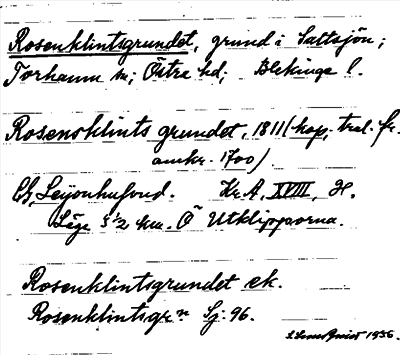 Rosenklintsgrundet, grund i Saltsjön;
Torhamn sn; Östra hd; Blekinge l.
Rosensklints grundet, 1811 (kop, trol. fr.
omkr. 1700).
CG, Leijonhufvud. Kr.A, XVIII, H.
Läge 5 1/2 km. Ö Utklipporna.
Rosenklintsgrundet ek.
Rosenklintsgr.n Sj. 96.
1936.